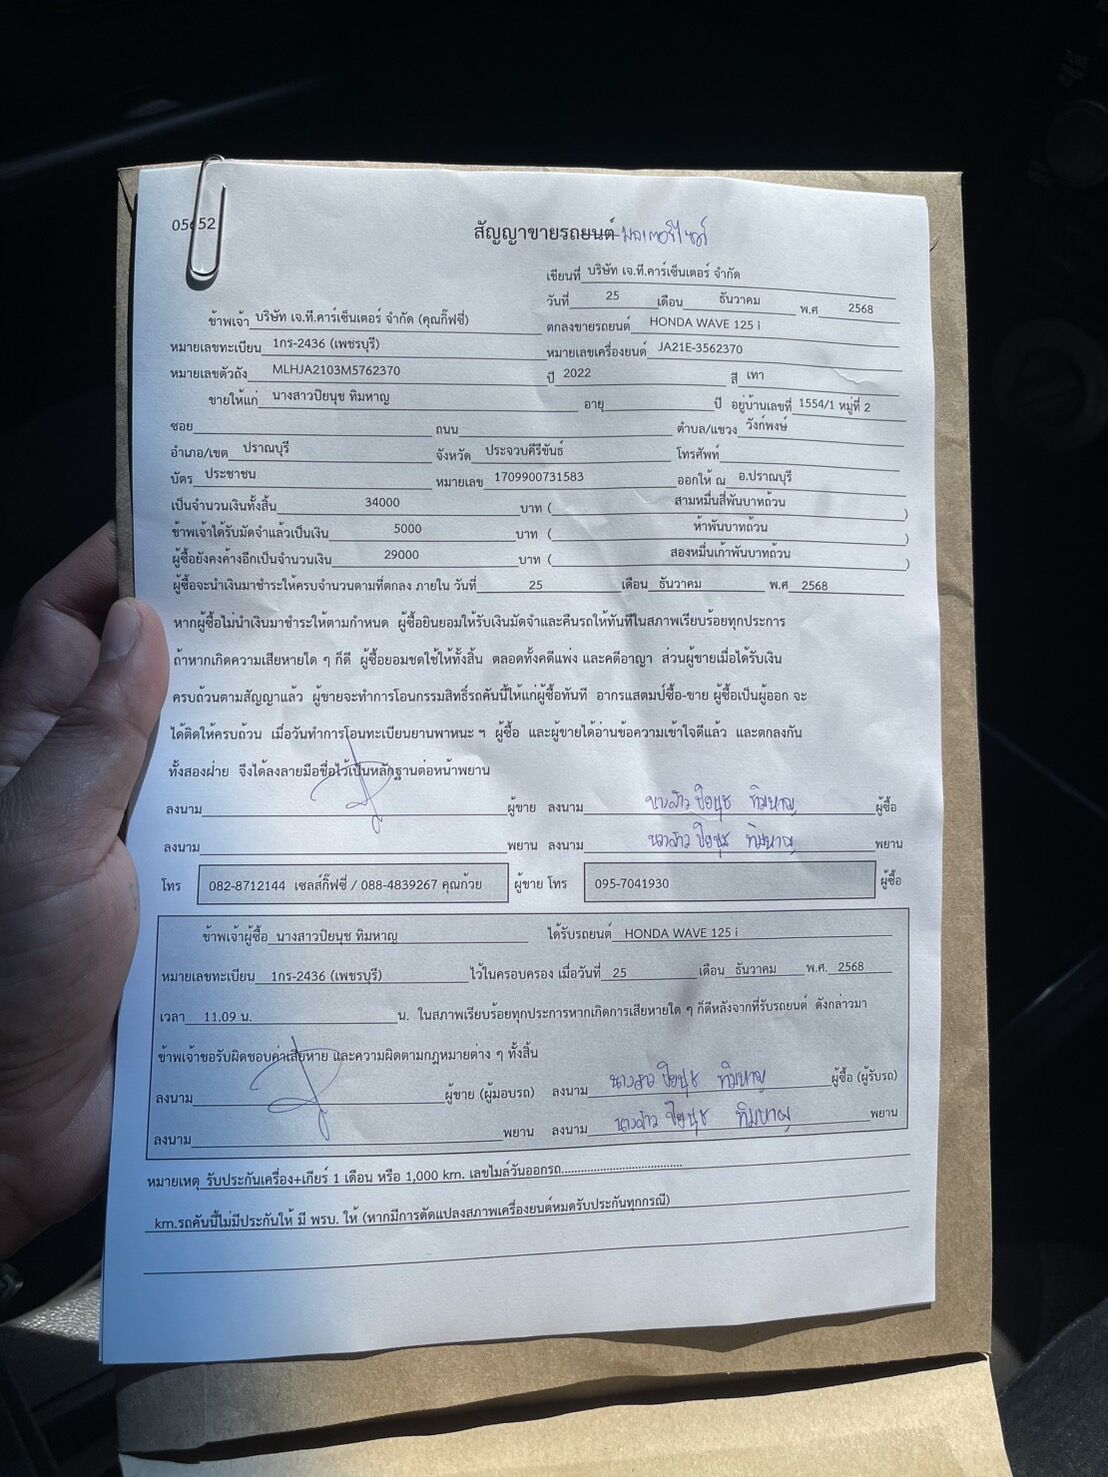 05652
สัญญาขายรถยนต์ มอเตอร์ไซค์
เขียนที่ บริษัท เจ.ที.คาร์เซ็นเตอร์ จำกัด
วันที่ 25 เดือน ธันวาคม พ.ศ 2568
ข้าพเจ้า บริษัท เจ.ที.คาร์เซ็นเตอร์ จำกัด (คุณกิ๊ฟซี่) ตกลงขายรถยนต์ HONDA WAVE 125 i
หมายเลขทะเบียน 1กร-2436 (เพชรบุรี) หมายเลขเครื่องยนต์ JA21E-3562370
หมายเลขตัวถัง MLHJA2103M5762370 ปี 2022 สี เทา
ขายให้แก่ นางสาวปิยนุช ทิมหาญ อายุ ปี อยู่บ้านเลขที่ 1554/1 หมู่ที่ 2
ซอย ถนน ตำบล/แขวง วังก์พงษ์
อำเภอ/เขต ปราณบุรี จังหวัด ประจวบคีรีขันธ์ โทรศัพท์
บัตร ประชาชน หมายเลข 1709900731583 ออกให้ ณ อ.ปราณบุรี
เป็นจำนวนเงินทั้งสิ้น 34000 บาท ( สามหมื่นสี่พันบาทถ้วน )
ข้าพเจ้าได้รับมัดจำแล้วเป็นเงิน 5000 บาท ( ห้าพันบาทถ้วน )
ผู้ซื้อยังคงค้างอีกเป็นจำนวนเงิน 29000 บาท ( สองหมื่นเก้าพันบาทถ้วน )
ผู้ซื้อจะนำเงินมาชำระให้ครบจำนวนตามที่ตกลง ภายใน วันที่ 25 เดือน ธันวาคม พ.ศ 2568
หากผู้ซื้อไม่นำเงินมาชำระให้ตามกำหนด ผู้ซื้อยินยอมให้รับเงินมัดจำและคืนรถให้ทันทีในสภาพเรียบร้อยทุกประการ
ถ้าหากเกิดความเสียหายใด ๆ ก็ดี ผู้ซื้อยอมชดใช้ให้ทั้งสิ้น ตลอดทั้งคดีแพ่ง และคดีอาญา ส่วนผู้ขายเมื่อได้รับเงิน
ครบถ้วนตามสัญญาแล้ว ผู้ขายจะทำการโอนกรรมสิทธิ์รถคันนี้ให้แก่ผู้ซื้อทันที อากรแสตมป์ซื้อ-ขาย ผู้ซื้อเป็นผู้ออก จะ
ได้ติดให้ครบถ้วน เมื่อวันทำการโอนทะเบียนยานพาหนะ ฯ ผู้ซื้อ และผู้ขายได้อ่านข้อความเข้าใจดีแล้ว และตกลงกัน
ทั้งสองฝ่าย จึงได้ลงลายมือชื่อไว้เป็นหลักฐานต่อหน้าพยาน
ลงนาม ผู้ขาย ลงนาม นางสาว ปิยนุช ทิมหาญ ผู้ซื้อ
ลงนาม พยาน ลงนาม นางสาว ปิยนุช ทิมหาญ พยาน
โทร 082-8712144 เซลส์กิ๊ฟซี่ / 088-4839267 คุณก้วย ผู้ขาย โทร 095-7041930 ผู้ซื้อ
ข้าพเจ้าผู้ซื้อ นางสาวปิยนุช ทิมหาญ ได้รับรถยนต์ HONDA WAVE 125 i
หมายเลขทะเบียน 1กร-2436 (เพชรบุรี) ไว้ในครอบครอง เมื่อวันที่ 25 เดือน ธันวาคม พ.ศ. 2568
เวลา 11.09 น. น. ในสภาพเรียบร้อยทุกประการหากเกิดการเสียหายใด ๆ ก็ดีหลังจากที่รับรถยนต์ ดังกล่าวมา
ข้าพเจ้าขอรับผิดชอบค่าเสียหาย และความผิดตามกฎหมายต่าง ๆ ทั้งสิ้น
ลงนาม ผู้ขาย (ผู้มอบรถ) ลงนาม นางสาว ปิยนุช ทิมหาญ ผู้ซื้อ (ผู้รับรถ)
ลงนาม พยาน ลงนาม นางสาว ปิยนุช ทิมหาญ พยาน
หมายเหตุ รับประกันเครื่อง+เกียร์ 1 เดือน หรือ 1,000 km. เลขไมล์วันออกรถ......................................
km.รถคันนี้ไม่มีประกันให้ มี พรบ. ให้ (หากมีการดัดแปลงสภาพเครื่องยนต์หมดรับประกันทุกกรณี)